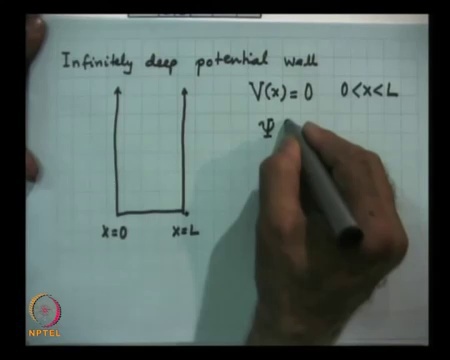 Infinitely deep potential wall
V(x) = 0 0 < x < L
Ψ
x=0 x=L
NPTEL